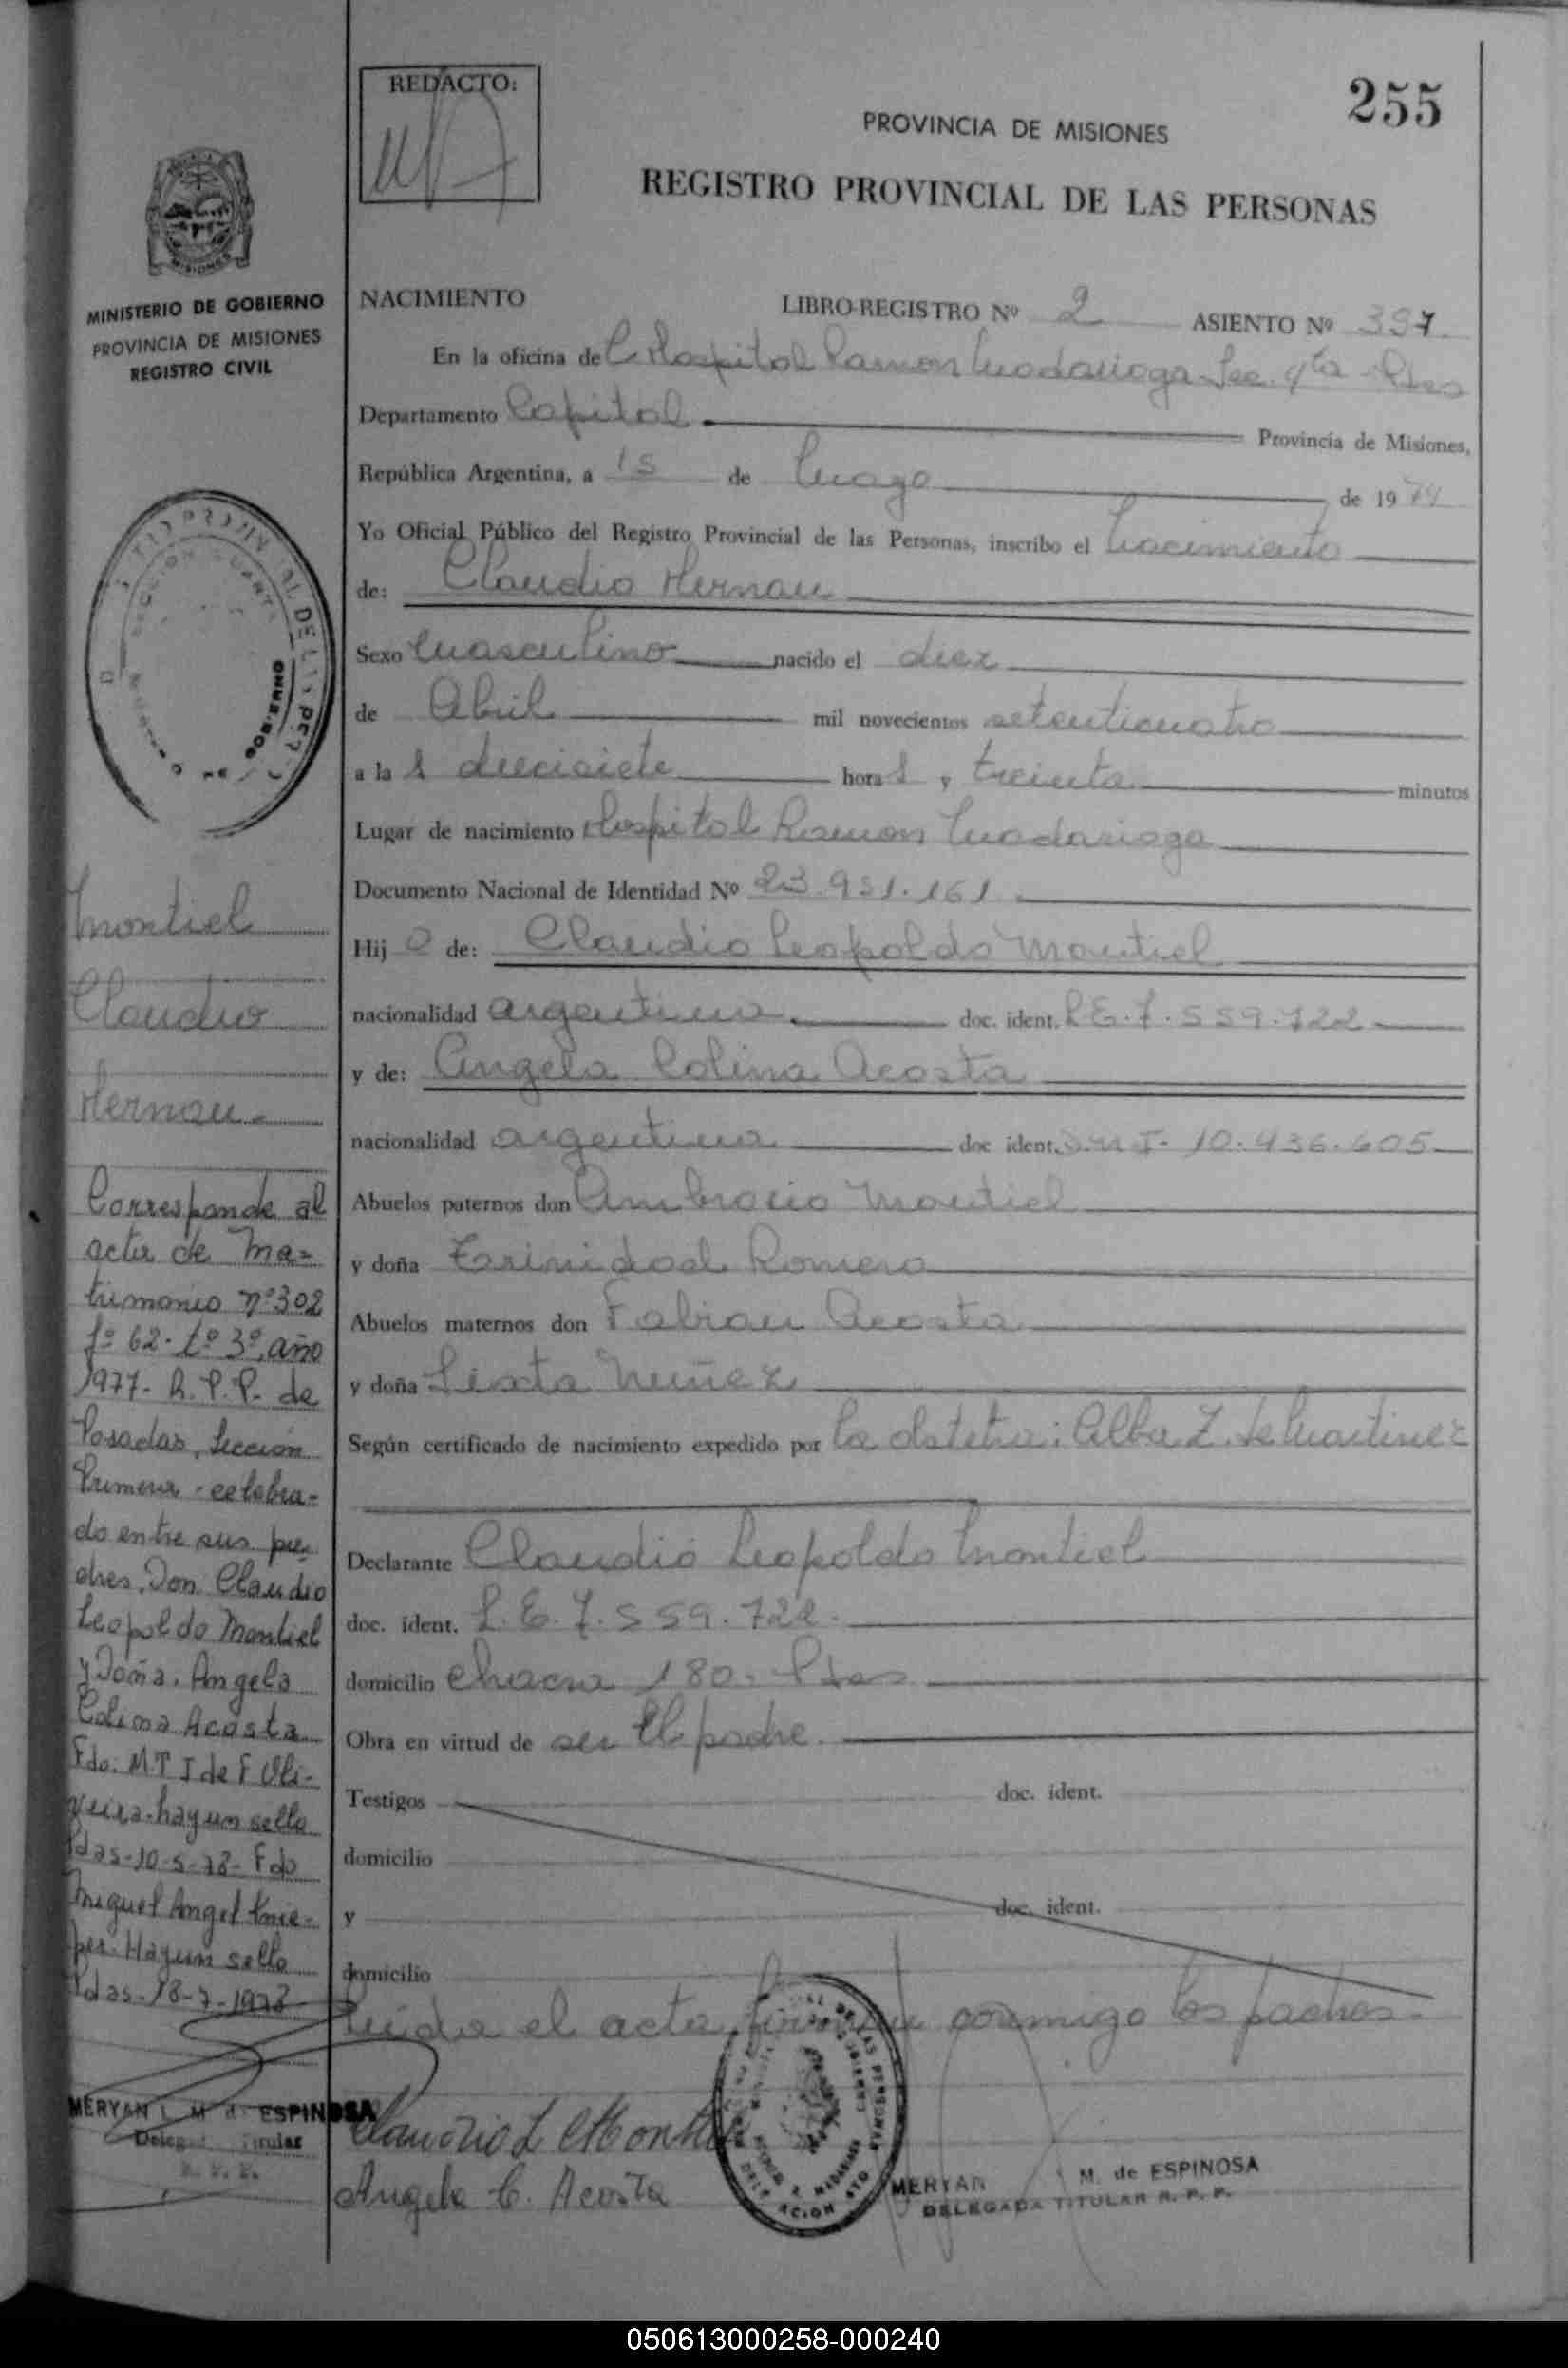 255
REDACTO:
PROVINCIA DE MISIONES
REGISTRO PROVINCIAL DE LAS PERSONAS
MISIONES
MINISTERIO DE GOBIERNO
PROVINCIA DE MISIONES
REGISTRO CIVIL
NACIMIENTO LIBRO-REGISTRO Nº 2 ASIENTO Nº 397
En la oficina de Hospital Ramon Madariaga Sec. 4ta Pdas
Departamento Capital Provincia de Misiones,
República Argentina, a 15 de Mayo de 1974
Yo Oficial Público del Registro Provincial de las Personas, inscribo el Nacimiento
de: Claudio Hernan
Sexo Masculino nacido el diez
de Abril mil novecientos setenticuatro
a la s diecisiete hora s y treinta minutos
Lugar de nacimiento Hospital Ramon Madariaga
Documento Nacional de Identidad Nº 23.951.161
Hij o de: Claudio Leopoldo Montiel
nacionalidad argentina doc. ident. L.E. 7.559.722
y de: Angela Colina Acosta
nacionalidad argentina doc ident. D.N.I- 10.436.605
Abuelos paternos don Ambrosio Montiel
y doña Trinidad Romero
Abuelos maternos don Fabian Acosta
y doña Sixta Nuñez
Según certificado de nacimiento expedido por la obstetra: Alba Z. de Martinez
Declarante Claudio Leopoldo Montiel
doc. ident. L.E. 7.559.722.
domicilio Chacra 180- Pdas
Obra en virtud de ser el padre.
Testigos doc. ident.
domicilio
y doc. ident.
domicilio
Leida el acta, firman conmigo los padres.
Claudio L Montiel
Angela C. Acosta
MERYAN M. de ESPINOSA
DELEGADA TITULAR R. P. P.
Montiel
Claudio
Hernan-
Corresponde al
acta de Ma-
trimonio nº 302
fº 62- tº 3º, año
1977- R.P.P. de
Posadas, Sección
Primera - celebra-
do entre sus pa-
dres, Don Claudio
Leopoldo Montiel
y Doña. Angela
Colina Acosta
Fdo: M.T I de F Oli-
veira-hay un sello
Pdas-10-5-78- Fdo
Miguel Angel
Hay un sello
Pdas-18-7-1978
MERYAN L. M. de ESPINOSA
Delegada Titular
R. P. P.
050613000258-000240